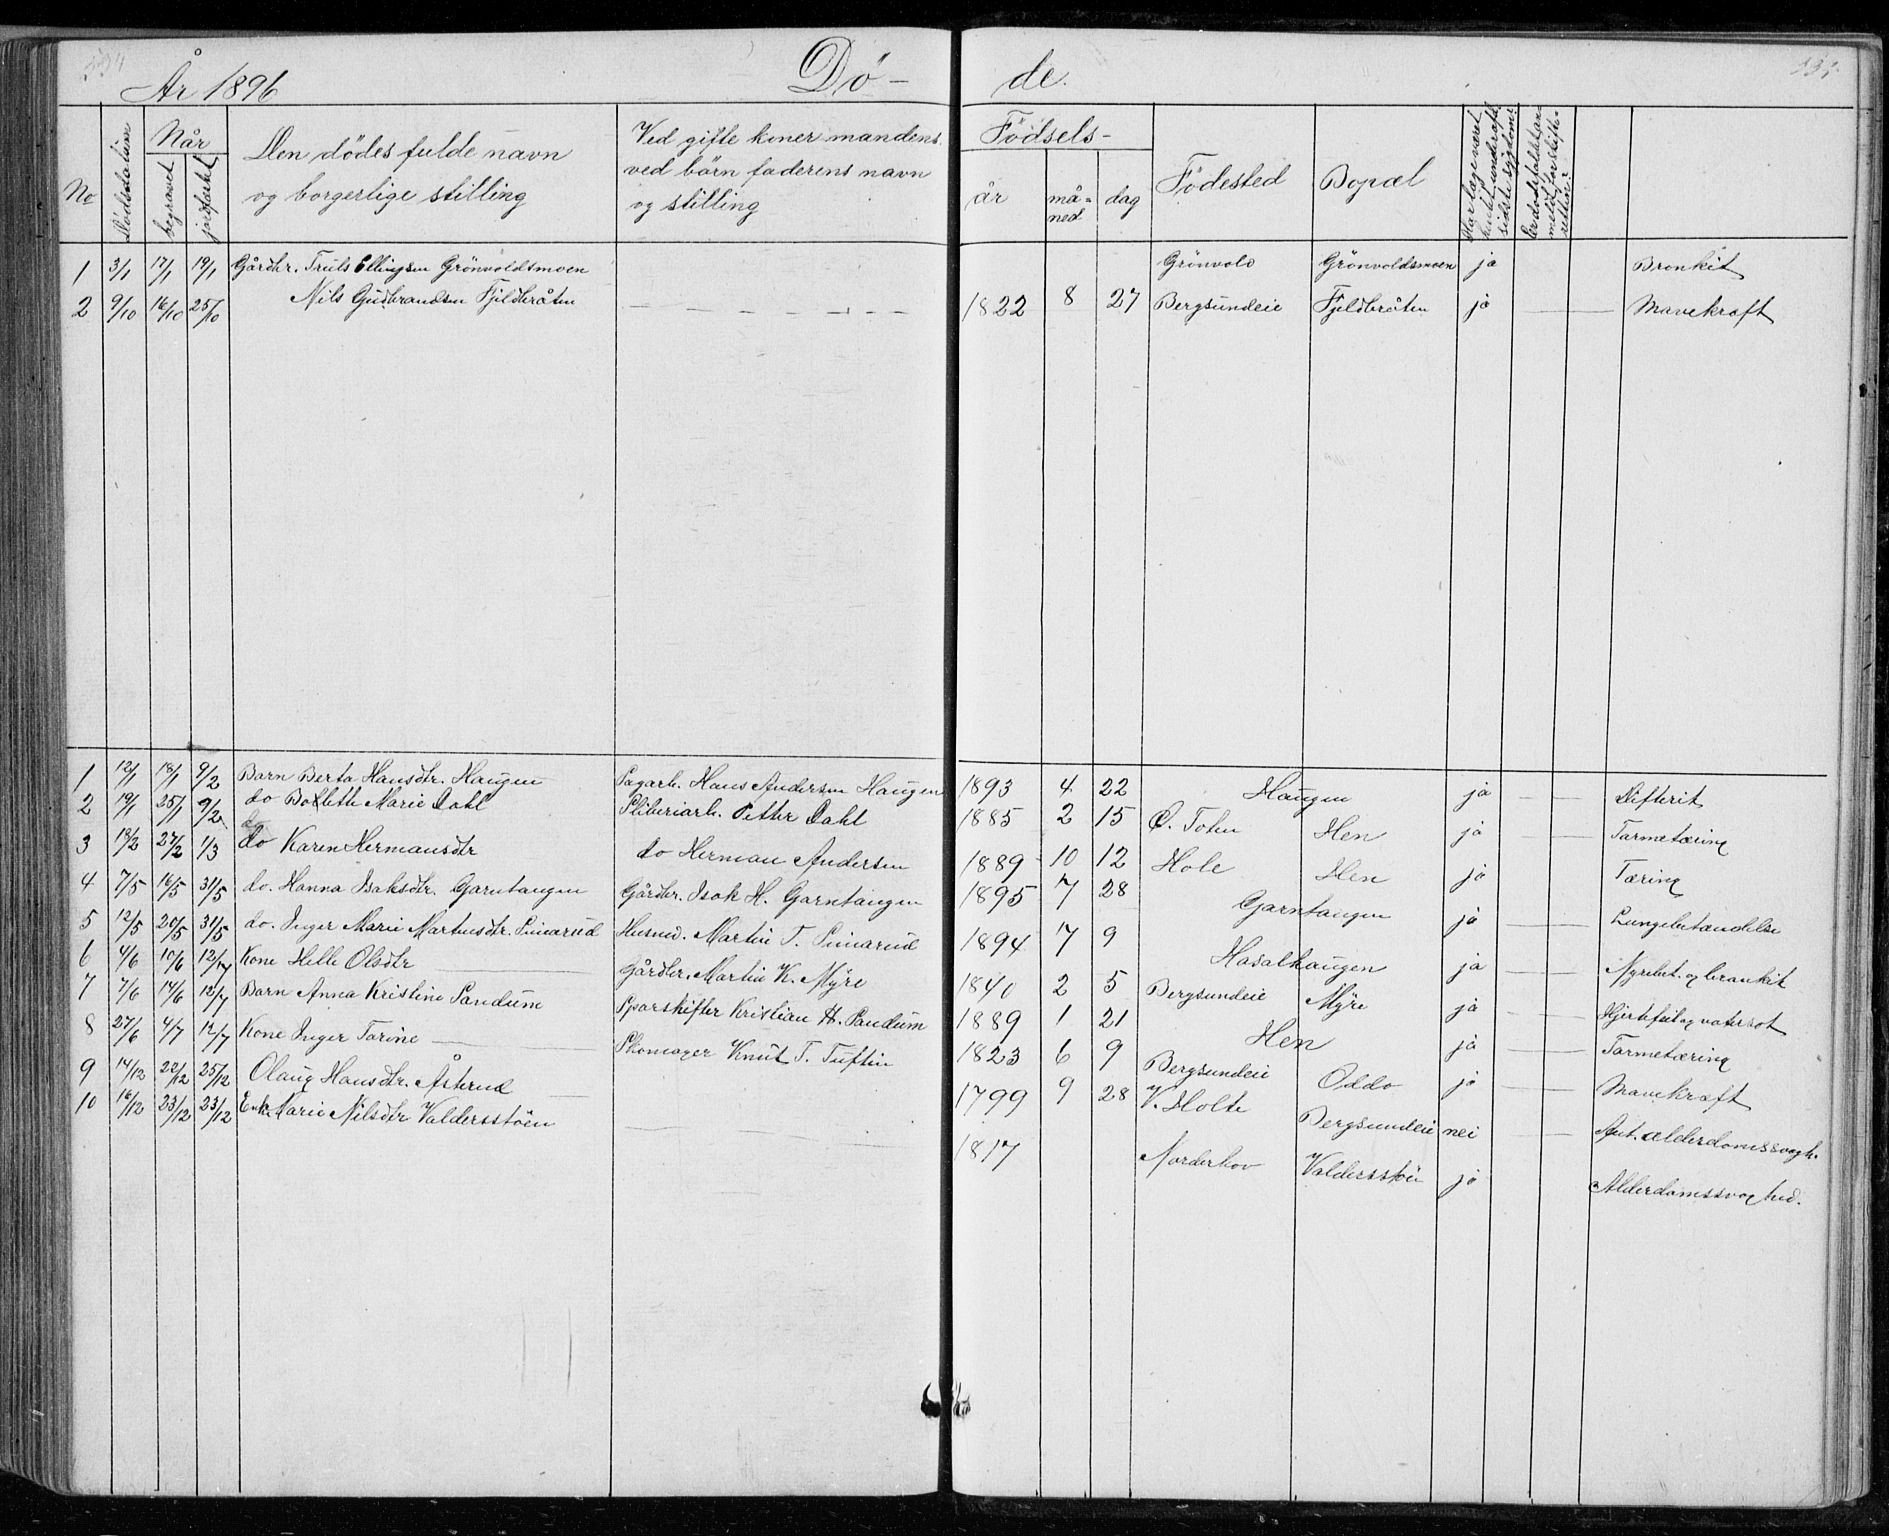 År 1896 Dö- de.
No Dødsdatum Når begravet jordfæstet Den dödes fulde navn og borgerlige stilling Ved gifte koner mandens, ved börn faderens navn og stilling Födsels- år måned dag Födested Bopæl
1 3/1 17/1 19/1 Gårdbr. Truls Ellingsen Grönvoldsmoen Grönvold Grönvoldsmoen ja Bronkit
2 9/10 16/10 25/10 Nils Gudbrandsen Fjeldbråten 1822 8 27 Bergsundeie Fjeldbråten ja Mavekræft
1 12/1 18/1 9/2 Barn Berta Hansdtr. Haugen Sagarb. Hans Andersen Haugen 1893 4 22 Haugen ja Difterit
2 19/1 25/1 9/2 do Bolleth Marie Dahl Sliberiarb. Petter Dahl 1885 2 15 Ö. Toten Hen ja Tarmetæring
3 18/2 27/2 1/3 do Karen Hermansdtr do Herman Andersen 1889 10 12 Hole Hen ja Tæring
4 7/5 16/5 31/5 do. Hanna Isaksdtr. Garntangen Gårdbr. Isak H. Garntangen 1895 7 28 Garntangen ja Lungebetændelse
5 12/5 20/5 31/5 do. Inger Marie Martinsdtr. Simarud Husmd. Martin T. Simarud 1894 7 9 Hasalhaugen ja Nyrebet. og brankit
6 4/6 10/6 12/7 Kone Helle Olsdtr Gårdbr. Martin K. Myre 1840 2 5 Bergsundeie Myre ja Hjertefeil og vatersot
7 7/6 14/6 12/7 Barn Anna Kristine Sandum Sporskifter Kristian H. Sandum 1889 1 21 Hen ja Tarmetæring
8 27/6 4/7 12/7 Kone Inger Torine Skomager Knut T. Tuftin 1823 6 9 Bergsundeie Oddo ja Mavekræft
9 14/12 22/12 25/12 Olaug Hansdtr. Åsterud 1799 9 28 V. Holte Bergsundeie nei Ant. alderdomssvagh.
10 16/12 23/12 23/12 Enk. Marie Nilsdtr Valdersstöen 1817 Norderhov Valdersstöen ja Alderdomssvaghed.